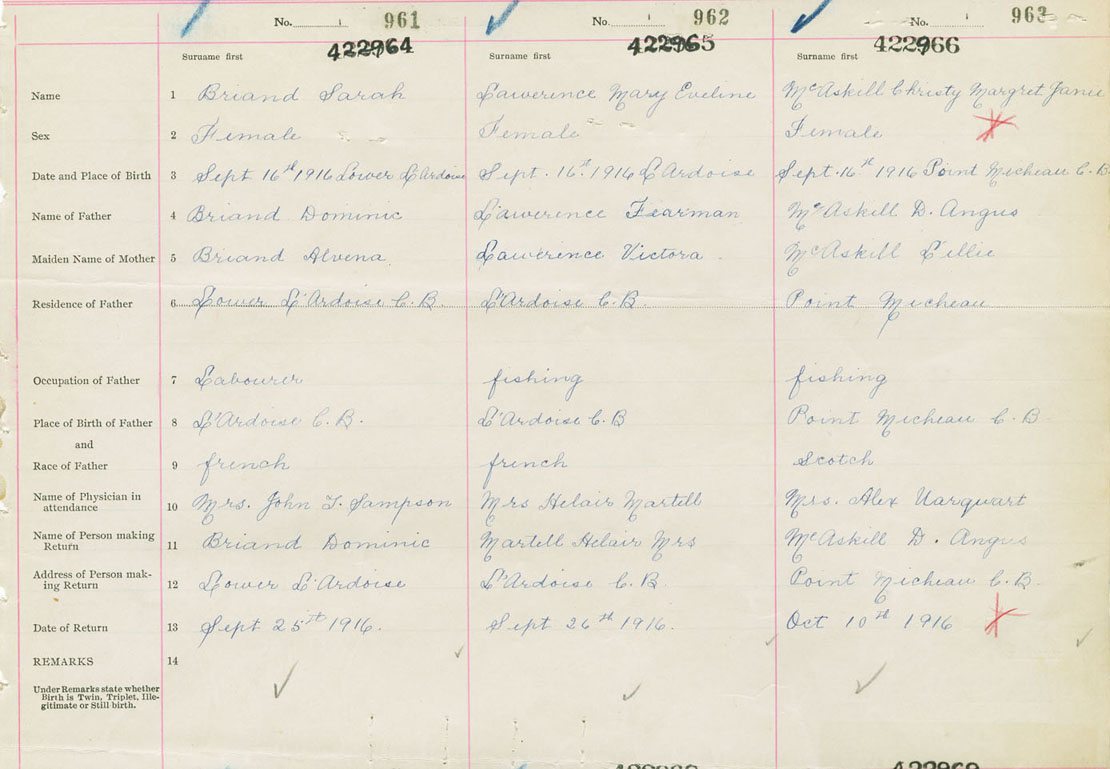 No. 1 961 No. 1 962 No. 1 963
422964 422965 422966
Surname first Surname first Surname first
Name 1 Briand Sarah Lawerence Mary Eveline McAskill Christy Margret Janie
Sex 2 Female Female Female
Date and Place of Birth 3 Sept 16th 1916 Lower L'Ardoise Sept. 16th 1916 L'Ardoise Sept. 16th 1916 Point Micheau C.B.
Name of Father 4 Briand Dominic Lawerence Fearman McAskill D. Angus
Maiden Name of Mother 5 Briand Alvena Lawerence Victora McAskill Lillie
Residence of Father 6 Lower L'Ardoise C.B. L'Ardoise C.B. Point Micheau
Occupation of Father 7 Labourer fishing fishing
Place of Birth of Father 8 L'Ardoise C.B. L'Ardoise C.B Point Micheau C.B
and
Race of Father 9 french french Scotch
Name of Physician in
attendance 10 Mrs. John T. Sampson Mrs Helair Martell Mrs. Alex Uarquwart
Name of Person making
Return 11 Briand Dominic Martell Helair Mrs McAskill D. Angus
Address of Person mak-
ing Return 12 Lower L'Ardoise L'Ardoise C.B. Point Micheau C.B.
Date of Return 13 Sept 25th 1916. Sept 26th 1916. Oct 10th 1916
REMARKS 14
Under Remarks state whether
Birth is Twin, Triplet, Ille-
gitimate or Still birth.